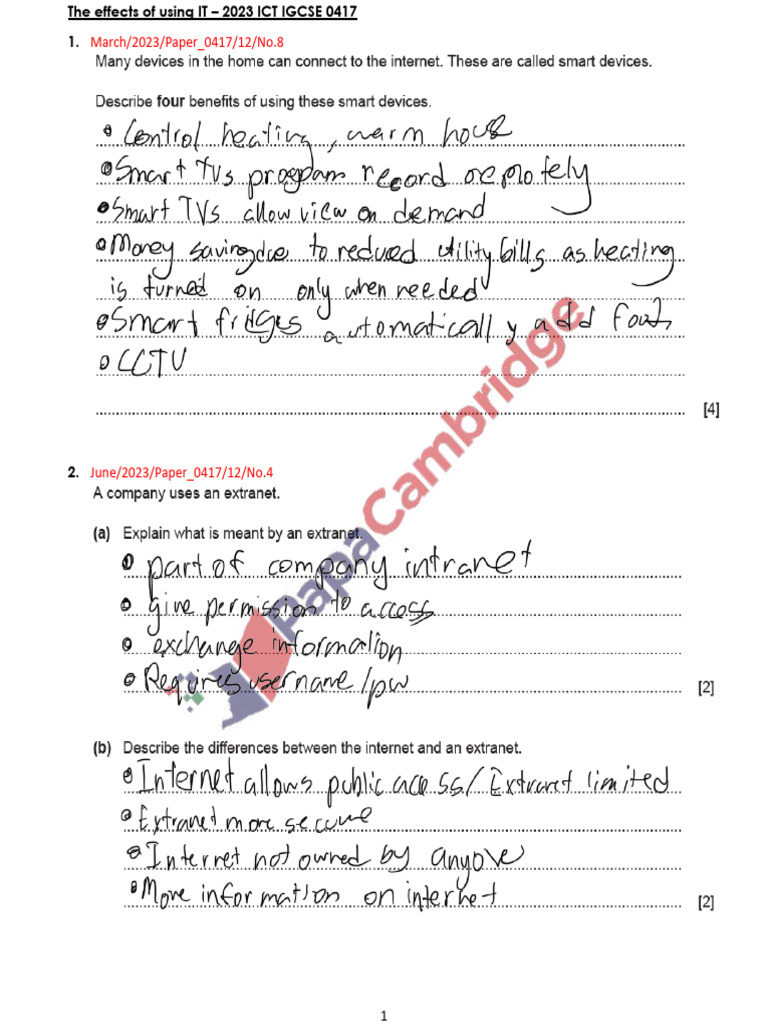 The effects of using IT – 2023 ICT IGCSE 0417
1. March/2023/Paper_0417/12/No.8
Many devices in the home can connect to the internet. These are called smart devices.
Describe four benefits of using these smart devices.
• Control heating, warm house
• Smart TVs program record remotely
• Smart TVs allow view on demand
• Money saving due to reduced utility bills as heating
is turned on only when needed
• Smart fridges automatically add
• CCTV
[4]
2. June/2023/Paper_0417/12/No.4
A company uses an extranet.
(a) Explain what is meant by an extranet.
• part of company intranet
• give permission to access
• exchange information
• Requires username/pw
[2]
(b) Describe the differences between the internet and an extranet.
• Internet allows public access/Extranet limited
• Extranet more secure
• Internet not owned by anyone
• More information on internet
[2]
PapaCambridge
1